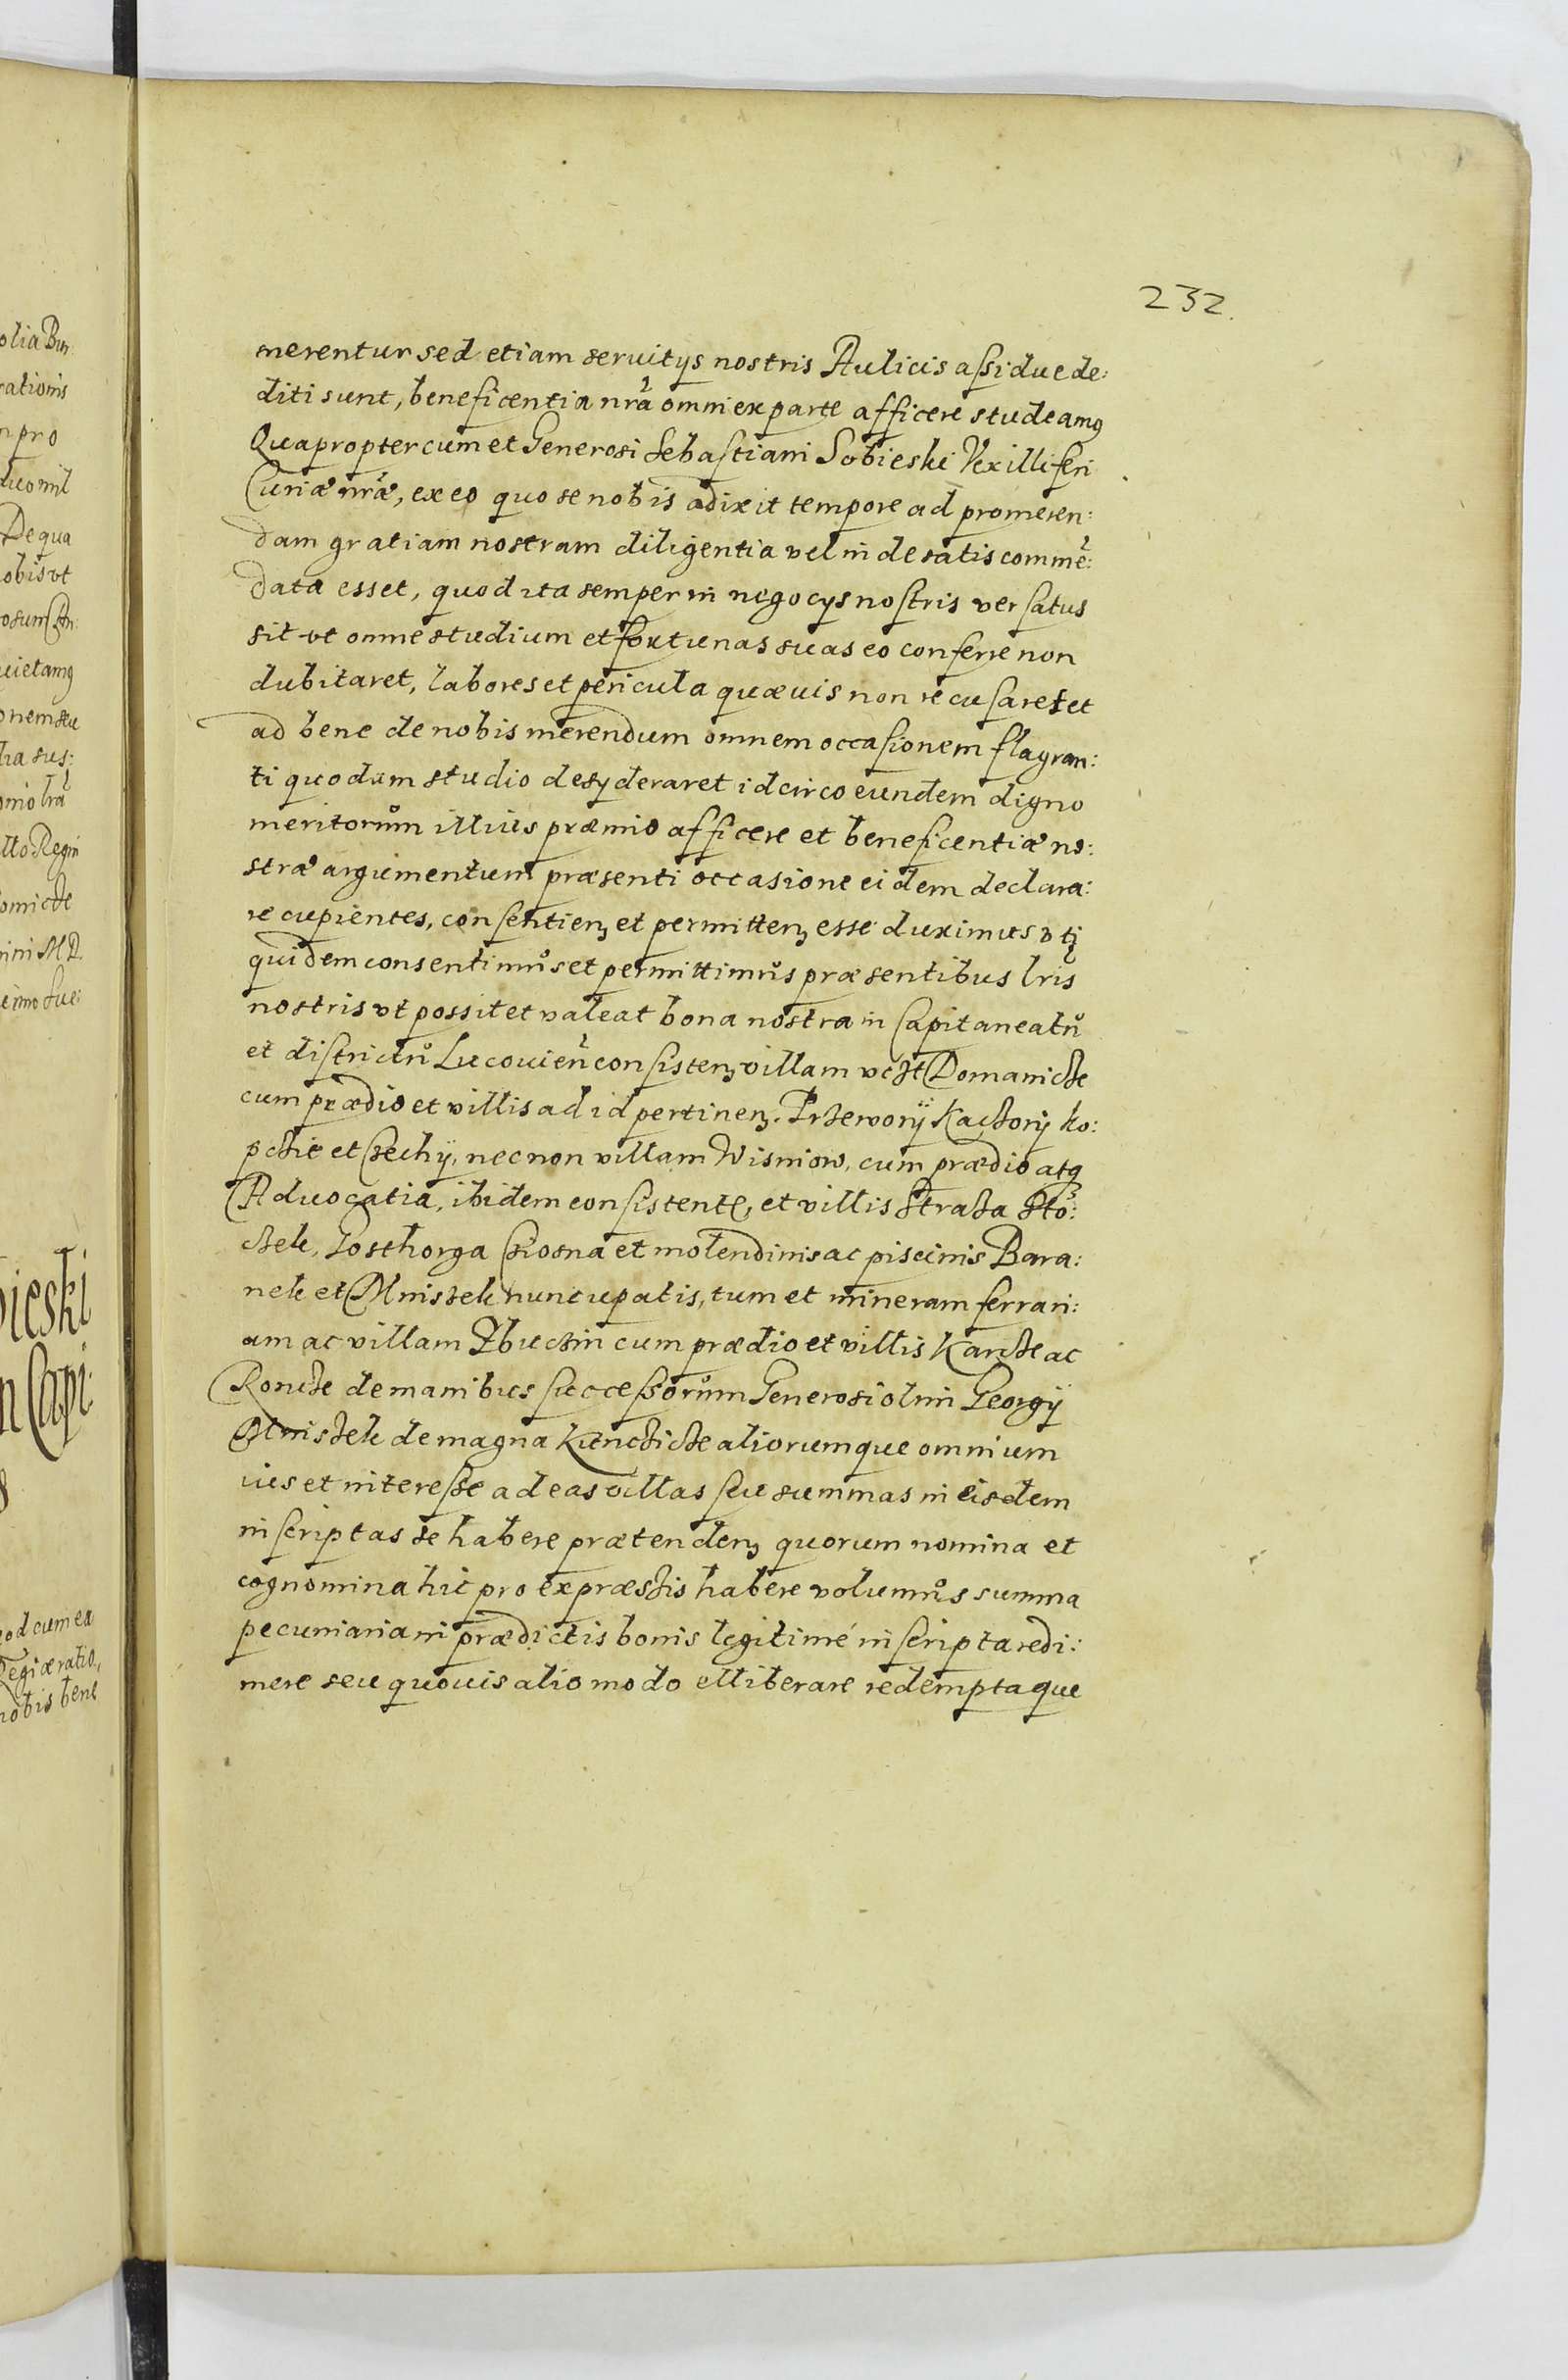 232.
merentur sed etiam seruitijs nostris Aulicis assidue de:
diti sunt, beneficentia nrã omni ex parte afficere studeamq
Quapropter cum et Generosi Sebastiani Sobieski Vexilliferi
Curiæ nrã̃e, ex eo quo se nobis adixit tempore ad promeren:
dam gratiam nostram diligentia vel inde satis commẽ:
data esset, quod ita semper in negocijs nostris versatus
sit vt omne studium et fortunas suas eo conferre non
dubitaret, labores et pericula quæuis non recusaret et
ad bene de nobis merendum omnem occasionem flagran:
ti quodam studio desyderaret idcirco eundem digno
meritorum illius præmio afficere et beneficentiæ no:
stræ argumentum præsenti occasione eidem declara:
re cupientes, consentienz et permittenz esse duximus vti
quidem consentimus et permittimus præsentibus lris
nostris vt possit et valeat bona nostra in Capitaneatu
et districtu Lucouień consistenz villam vczt Domanicze
cum prædio et villis ad id pertinenz. Przewory Kaczory ko:
pcze et Czechy, nec non villam Wisniow, cum prædio atq
Aduocatia, ibidem consistente, et villis Straza Sto:
czek, Josthorga Cziosna et molendinis ac piscinis Bara:
nek et Mniszek nuncupatis, tum et mineram ferrari:
am ac villam Zbuczin cum prædio et villis Karcze ac
Roncze de manibus successorum Generosi olim Georgÿ
Mniszek de magna Kunczicze aliorumque omnium
ius et interesse ad eas villas seu summas in eisdem
inscriptas se habere prætendenz quorum nomina et
cognomina hic pro expræssis habere volumus summa
pecuniaria in prædictis bonis legitimé inscripta redi:
mere seu quouis alio modo elliberare redemptaque